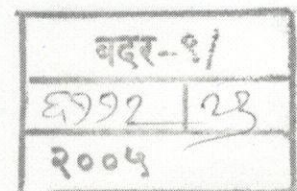 वदर-९/
६११२
२००५